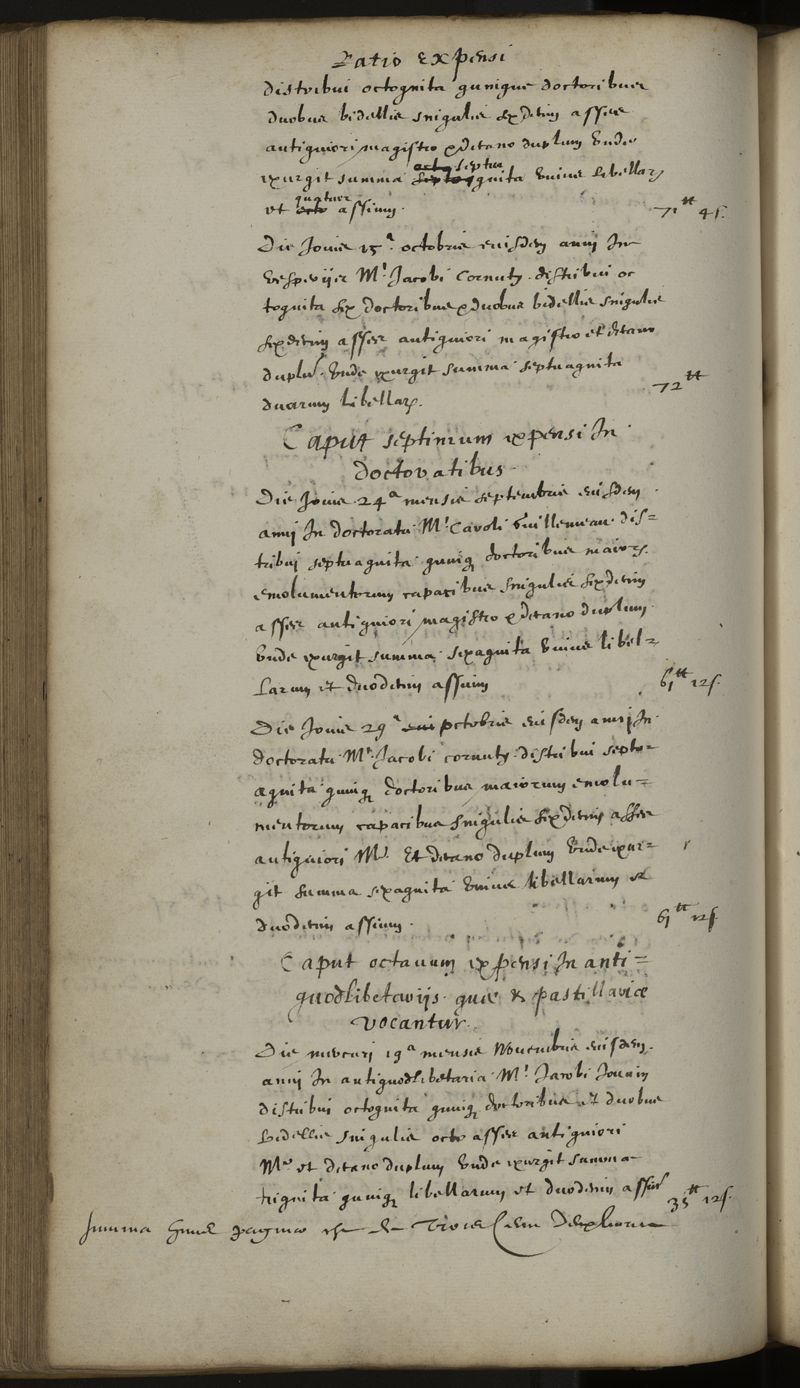 Ratio Expensi
distribui octoginta quinque doctoribus
duobus bidellis singulis sexdecim asses
antiquiori magistro & decano duplum Unde
exurgit summa septua ginta Unius libellar
et quatuor assium.
71tt 4s.
Die Jovis 15a octobris eiusdem anni In
vesperijs Mri Jacobi Cornuty distribui oc
toginta sex doctoribus & duobus bidellis singulis
sexdecim asses antiquiori magistro et decano
duplu. Unde exurgit summa septuaginta
duarum libellar.
72tt
Caput septimum expensi In
doctoratibus
Die Jovis 24a mensis septembris eiusdem
anni In doctoratu Mri Caroli Guillemeau dis=
tribui septuaginta quinq doctoribus maior.
emolumentorum capacibus singulis sexdecim
asses antiquiori magistro & decano duplum
Unde exurgit summa sexaginta Unius libel=
larum et duodecim assium
61tt 12s.
Die Jovis 29a octobris eiusdem anni In
doctoratu Mri Jacobi cornuty distribui septu=
aginta quinq doctoribus maiorum emolu=
mentorum capacibus singulis sexdecim asses
antiquiori Mro Et decano duplum Unde exur=
git summa sexaginta Unius libellarum et
duodecim assium.
61tt 12s
Caput octavum expensi In anti=
quodlibetarijs quae & pastillariae
vocantur.
Die mercurj 19a mensis Novembris eiusdem
anni In antiquodlibetaria Mri Jacobi Jouvin
distribui octoginta quinq doctoribus et duobus
bidellis singulis octo asses antiquiori
Mro et decano duplum Unde exurgit summa
triginta quinq libellarum et duodecim assiu
35tt 12s.
summa huius paginae